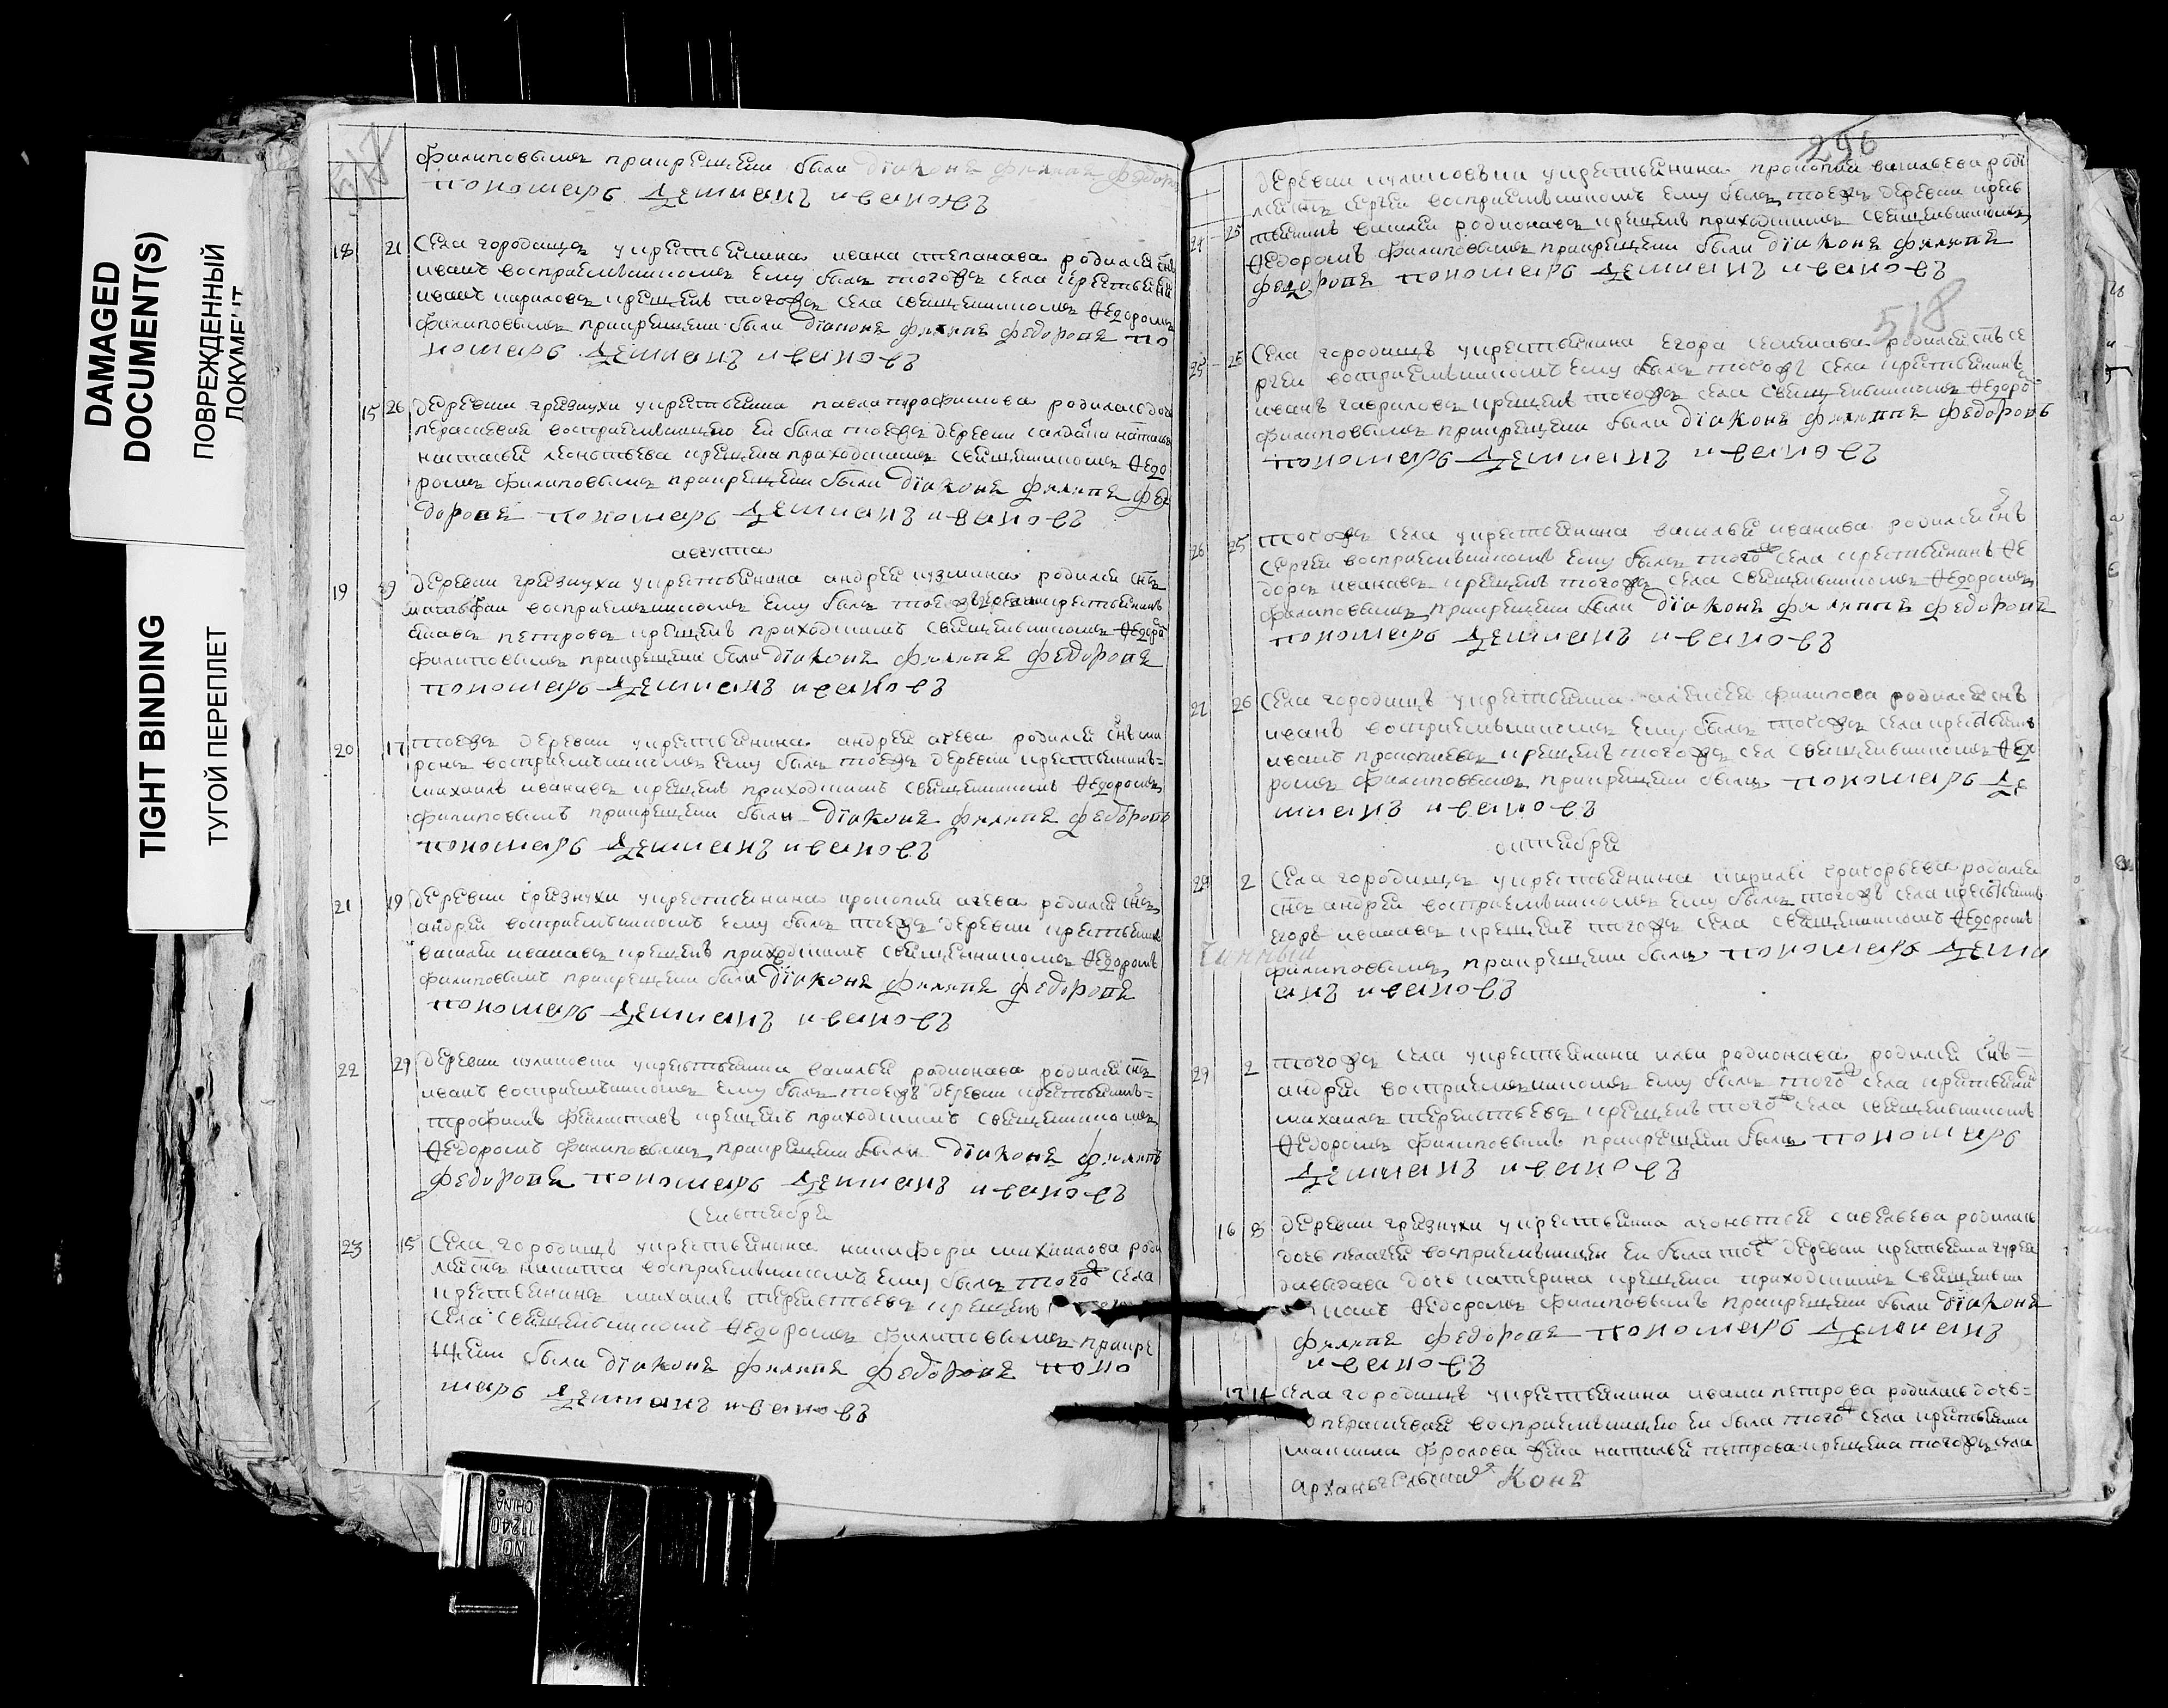 DAMAGED
DOCUMENT(S)
ПОВРЕЖДЕННЫЙ
TIGHT BINDING
ТУГОЙ ПЕРЕПЛЕТ
филиповымъ прикрещении были диаконъ филипъ федоров
пономарь демианъ ивановъ
18 21 Села городищъ у крестьянина ивана степанава родился снъ
иванъ восприемникомъ ему былъ тогожъ села крестьянин
иванъ кириловъ крещенъ тогожъ села священникомъ Ѳедоромъ
филиповымъ прикрещении были диаконъ филипъ федоровъ по
номарь демианъ ивановъ
15 26 деревни грязнухи у крестьянина павла трофимова родилась дочь
параскевия восприемницею ей была тоежъ деревни
леонтьева крещена приходскимъ священникомъ Ѳедо
ромъ филиповымъ прикрещении были диаконъ филипъ фе
доровъ пономарь демианъ ивановъ
августа
19 9 деревни грязнухи у крестьянина андрея кузмина родился снъ
матвфаи восприемникомъ ему былъ тоежъ деревни крестьянинъ
петровъ крещенъ приходскимъ священникомъ Ѳедоро
филиповымъ прикрещении были диаконъ филипъ федоровъ
пономарь демианъ ивановъ
20 17 тоежъ деревни у крестьянина андрея агева родился снъ ми
ронъ восприемникомъ ему былъ тоежъ деревни крестьянинъ
михаилъ иванавъ крещенъ приходскимъ священникомъ Ѳедоромъ
филиповымъ прикрещении были диаконъ филипъ федоровъ
пономарь демианъ ивановъ
21 19 деревни грязнухи у крестьянина прокопия агева родился снъ
андреи восприемникомъ ему былъ тоежъ деревни крестьянинъ
василеи иванавъ крещенъ приходскимъ священникомъ Ѳедоромъ
филиповымъ прикрещении были диаконъ филипъ федоровъ
пономарь демианъ ивановъ
22 29 деревни куликовки у крестьянина василья родионава родился снъ
иванъ восприемникомъ ему былъ тоежъ деревни крестьянинъ
трофимъ крещенъ приходскимъ священникомъ
Ѳедоромъ филиповымъ прикрещении были диаконъ филипъ
федоровъ пономарь демианъ ивановъ
сентября
23 15 Села городищъ у крестьянина никифора михаилова роди
лся снъ никита восприемникомъ ему былъ тогожъ села
крестьянинъ михаилъ терентьевъ крещенъ
села священникомъ Ѳедоромъ филиповымъ прикре
щении были диаконъ филипъ федоровъ поно
марь демианъ ивановъ
296
деревни куликовки у крестьянина прокопия васильева роди
24 25 лся снъ сергеи восприемникомъ ему былъ тоежъ деревни кресь
тьянинъ василеи родионавъ крещенъ приходскимъ священникомъ
Ѳедоромъ филиповымъ прикрещении были диаконъ филипъ
федоровъ пономарь демианъ ивановъ
518
25 25 Села городищъ у крестьянина егора семенава родился снъ се
ргеи восприемникомъ ему былъ тогожъ села крестьянинъ
иванъ гавриловъ крещенъ тогожъ села священникомъ Ѳедоро
филиповымъ прикрещении были диаконъ филипъ федоровъ
пономарь демианъ ивановъ
26 25 тогожъ села у крестьянина василья иванава родился снъ
сергеи восприемникомъ ему былъ тогожъ села крестьянинъ Ѳе
доръ иванавъ крещенъ тогожъ села священникомъ Ѳедоромъ
филиповымъ прикрещении были диаконъ филипъ федоровъ
пономарь демианъ ивановъ
26 Села городищъ у крестьянина алексея филипова родился снъ
иванъ восприемникомъ ему былъ тогожъ села крестьянинъ
иванъ прокопиевъ крещенъ тогожъ сел священникомъ Ѳедо
ромъ филиповымъ прикрещении былъ пономарь де
мианъ ивановъ
октября
28 2 Села городищъ у крестьянина кирилы григорьева родился
снъ андреи восприемникомъ ему былъ тогожъ села крестьянинъ
егоръ иванавъ крещенъ тогожъ села священникомъ Ѳедоромъ
филиповымъ прикрещении былъ пономарь деми
анъ ивановъ
29 2 тогожъ села у крестьянина ильи родионава родился снъ
андреи восприемникомъ ему былъ тогожъ села крестьянин
михаилъ терентьевъ крещенъ тогожъ села священникомъ
Ѳедоромъ филиповымъ прикрещении былъ пономарь
демианъ ивановъ
16 8 деревни грязнухи у крестьянина леонтья савельева родилась
дочь пелагея восприемницеи ей была тоежъ деревни крестьянина
давыдава дочь катерина крещена приходскимъ священни
комъ Ѳедоромъ филиповымъ прикрещении были диаконъ
филипъ федоровъ пономарь демианъ
ивановъ
17 14 села городищъ у крестьянина ивана петрова родилась дочь
параскевия восприемницею ей была тогожъ села крестьянина
максима фролова жена наталья петрова крещена тогожъ села